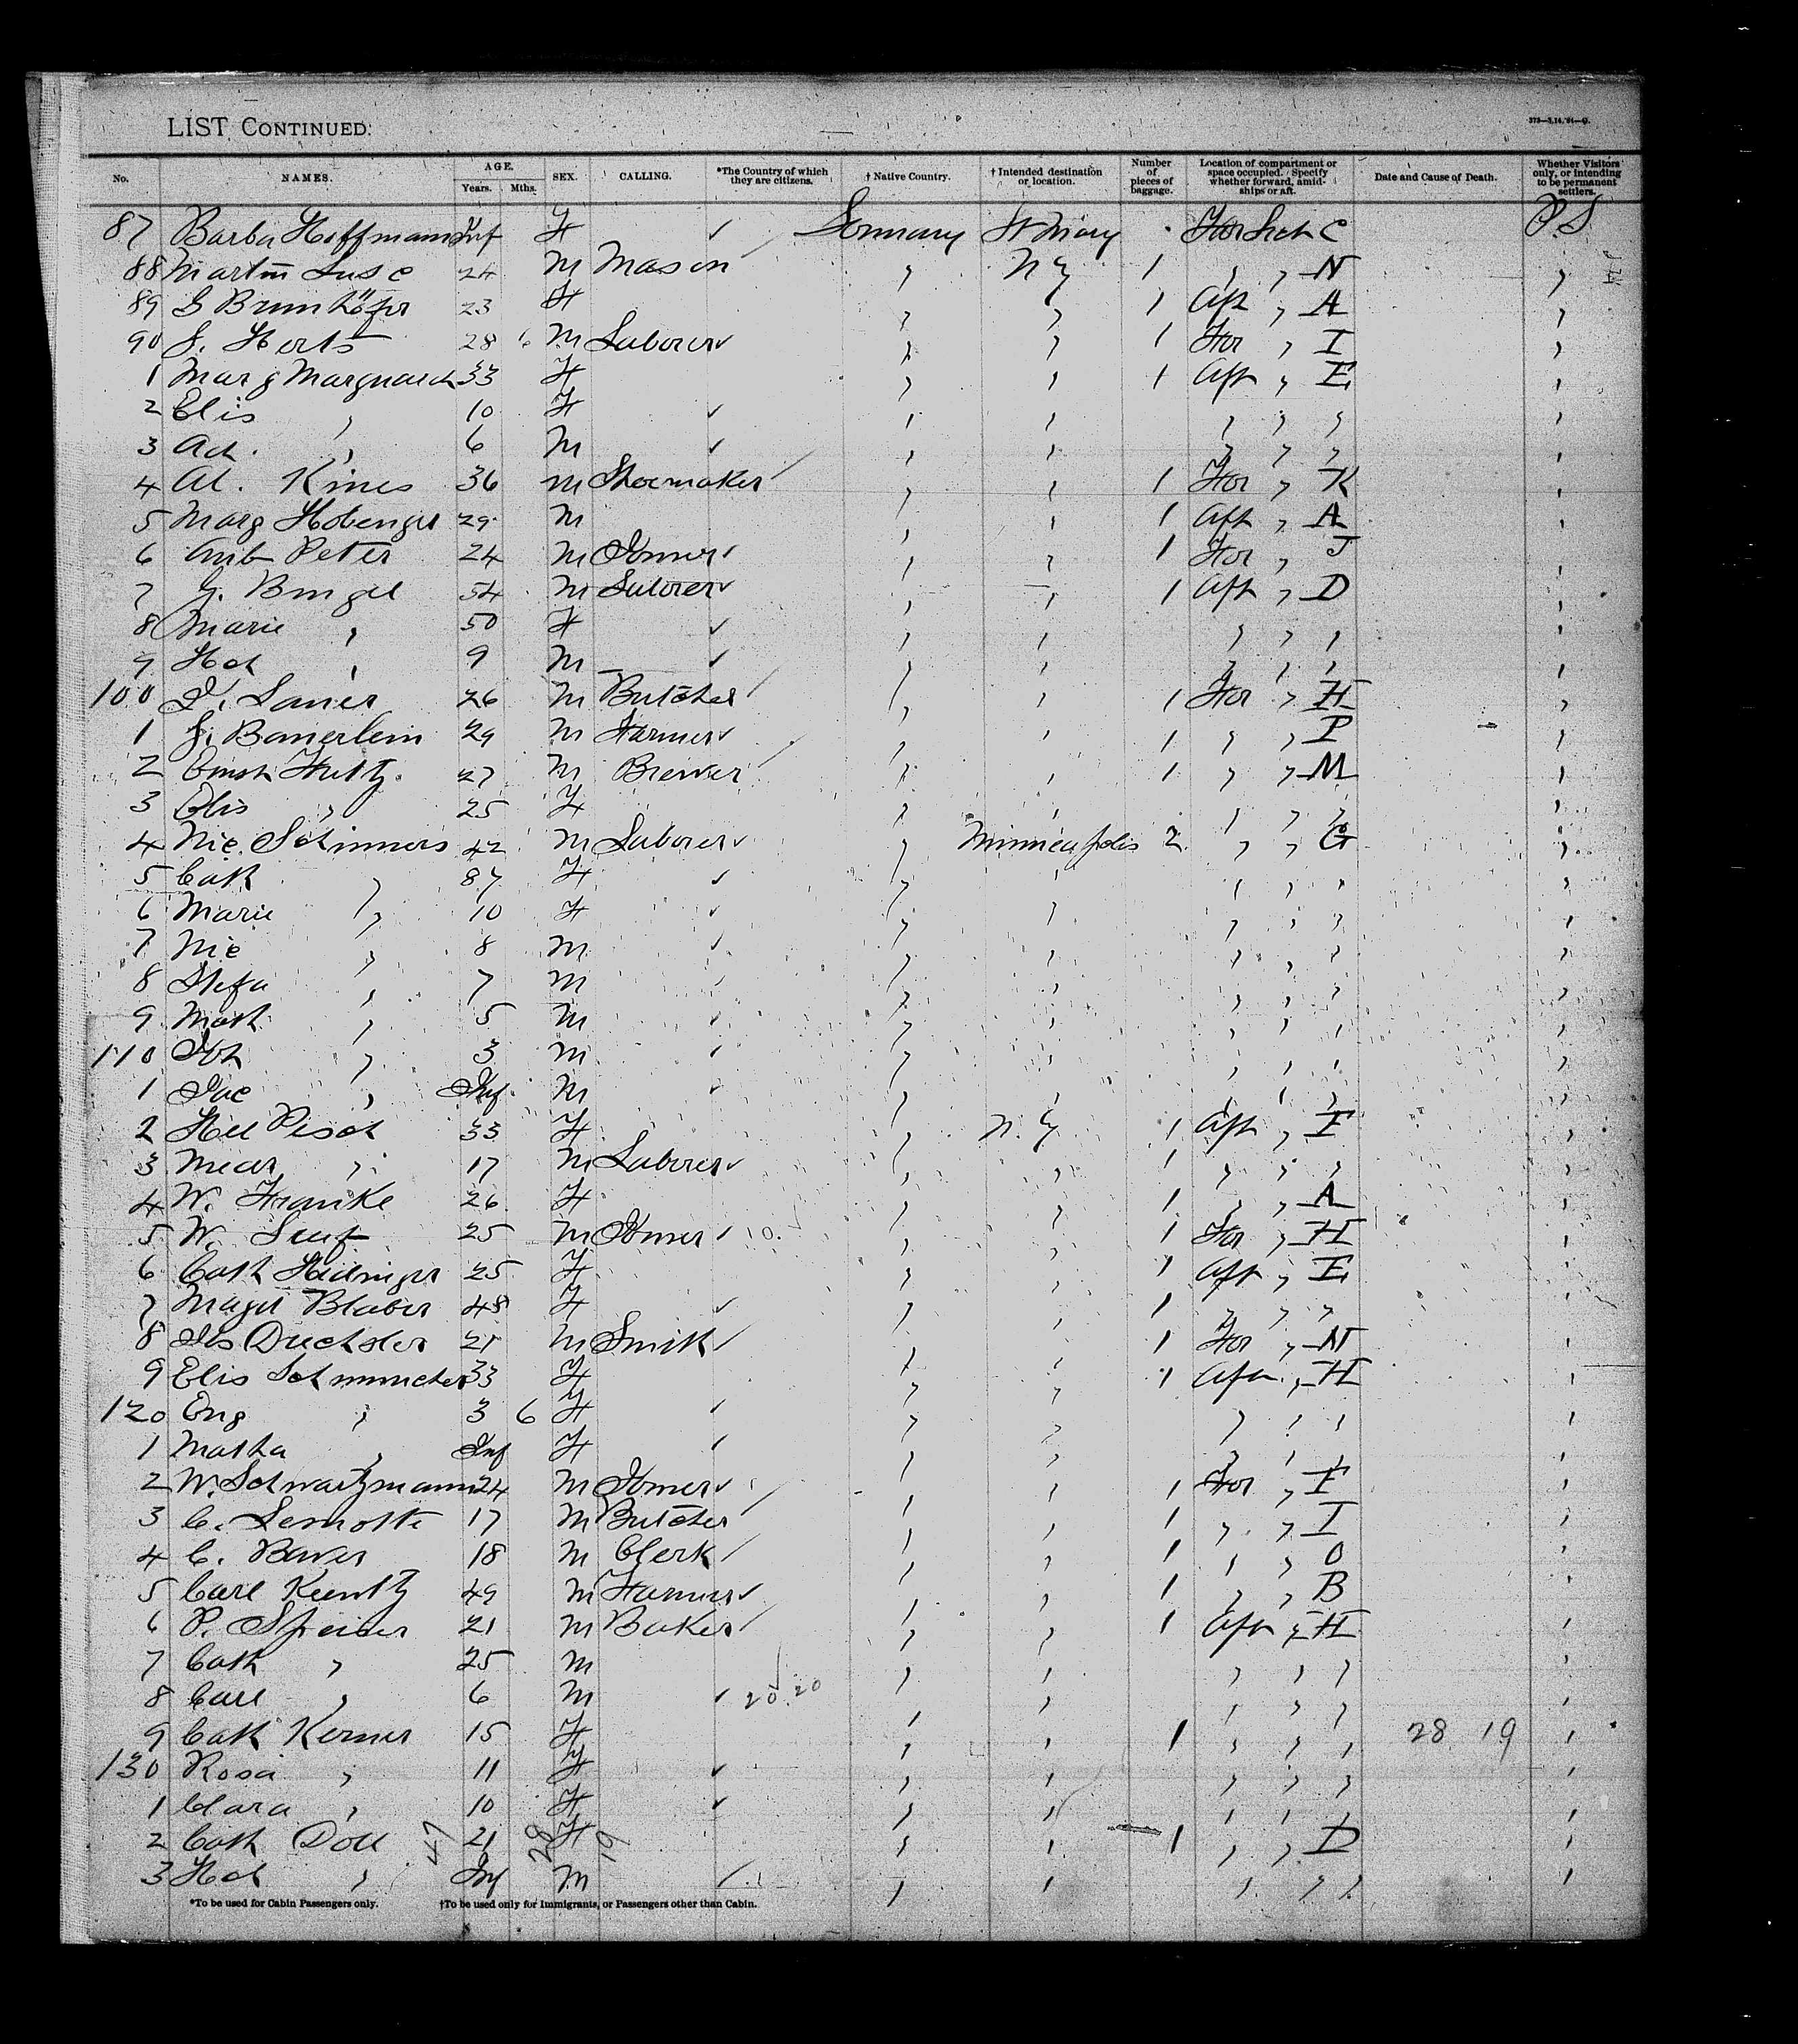 LIST CONTINUED.
373—3,14,'94—G.
No. NAMES. AGE. Years. Mths. SEX. CALLING. *The Country of which they are citizens. † Native Country. † Intended destination or location. Number of pieces of baggage. Location of compartment or space occupied. Specify whether forward, amidships or aft. Date and Cause of Death. Whether Visitors only, or intending to be permanent settlers.
87 Barba Hoffmann Inf F ✓ Germany St Mary For Sect C P.S
88 Martin 24 M Mason " N Y 1 " " N "
89 G 23 F " " 1 Aft " A "
90 J. Herts 28 6 M Laborer ✓ " " 1 For " I "
1 Marg Marguard 33 F " " 1 Aft " E "
2 Elis " 10 F ✓ " " " " " "
3 Ad. " 6 M ✓ " " " " " "
4 Al. Kines 36 M Shoemaker " " 1 For " K "
5 Marg 29 M " " 1 Aft " A "
6 Peter 24 M ✓ " " 1 For " J "
7 G. 54 M Laborer ✓ " " 1 Aft " D "
8 Marie " 50 F ✓ " " " " " "
9 " 9 M ✓ " " " " " "
100 26 M Butcher " " 1 For " H "
1 J. Bauerlein 29 M Farmer ✓ " " 1 " " P "
2 Ernst 27 M Brewer " " 1 " " M "
3 Elis " 25 F " " " " " "
4 Nic. Schinners 42 M Laborer ✓ " Minneapolis 2 " " G "
5 Cath " 37 F ✓ " " " " " "
6 Marie " 10 F ✓ " " " " " "
7 Nic " 8 M ✓ " " " " " "
8 Stefa " 7 M " " " " " "
9 Math " 5 M ✓ " " " " " "
110 Joh " 3 M ✓ " " " " " "
1 Jac " Inf. M ✓ " " " " " "
2 33 F " N. Y 1 Aft " F "
3 " 17 M Laborer ✓ " " 1 " " " "
4 W. Franke 26 F " " 1 " " A "
5 W. 25 M ✓ 10. " " 1 For " H "
6 Cath 25 F " " 1 Aft " E "
7 Blaber 48 F ✓ " " 1 " " " "
8 21 M Smith " " 1 For " N "
9 Elis 33 F " " 1 Aft " H "
120 Eng " 3 6 F ✓ " " " " " "
1 Martha " Inf F ✓ " " " " " "
2 W. Schwartzmann 24 M ✓ " " 1 For " F "
3 C. Lemotte 17 M Butcher " " 1 " " I "
4 C. 18 M Clerk " " 1 " " O "
5 Carl Kuntz 49 M Farmer ✓ " " 1 " " B "
6 P. Speicer 21 M Baker " " 1 Aft " H "
7 Cath " 25 M " " " " " "
8 Carl " 6 M ✓ 20. 20 " " " " " "
9 Cath Kerner 15 F " " 1 " " " 28 19 "
130 Rosa " 11 F ✓ " " " " " "
1 Clara " 10 F ✓ " " " " " "
2 Cath Doll 21 F " " 1 " " D "
3 " Inf M " " " " " "
47 28 19
*To be used for Cabin Passengers only. †To be used only for Immigrants, or Passengers other than Cabin.